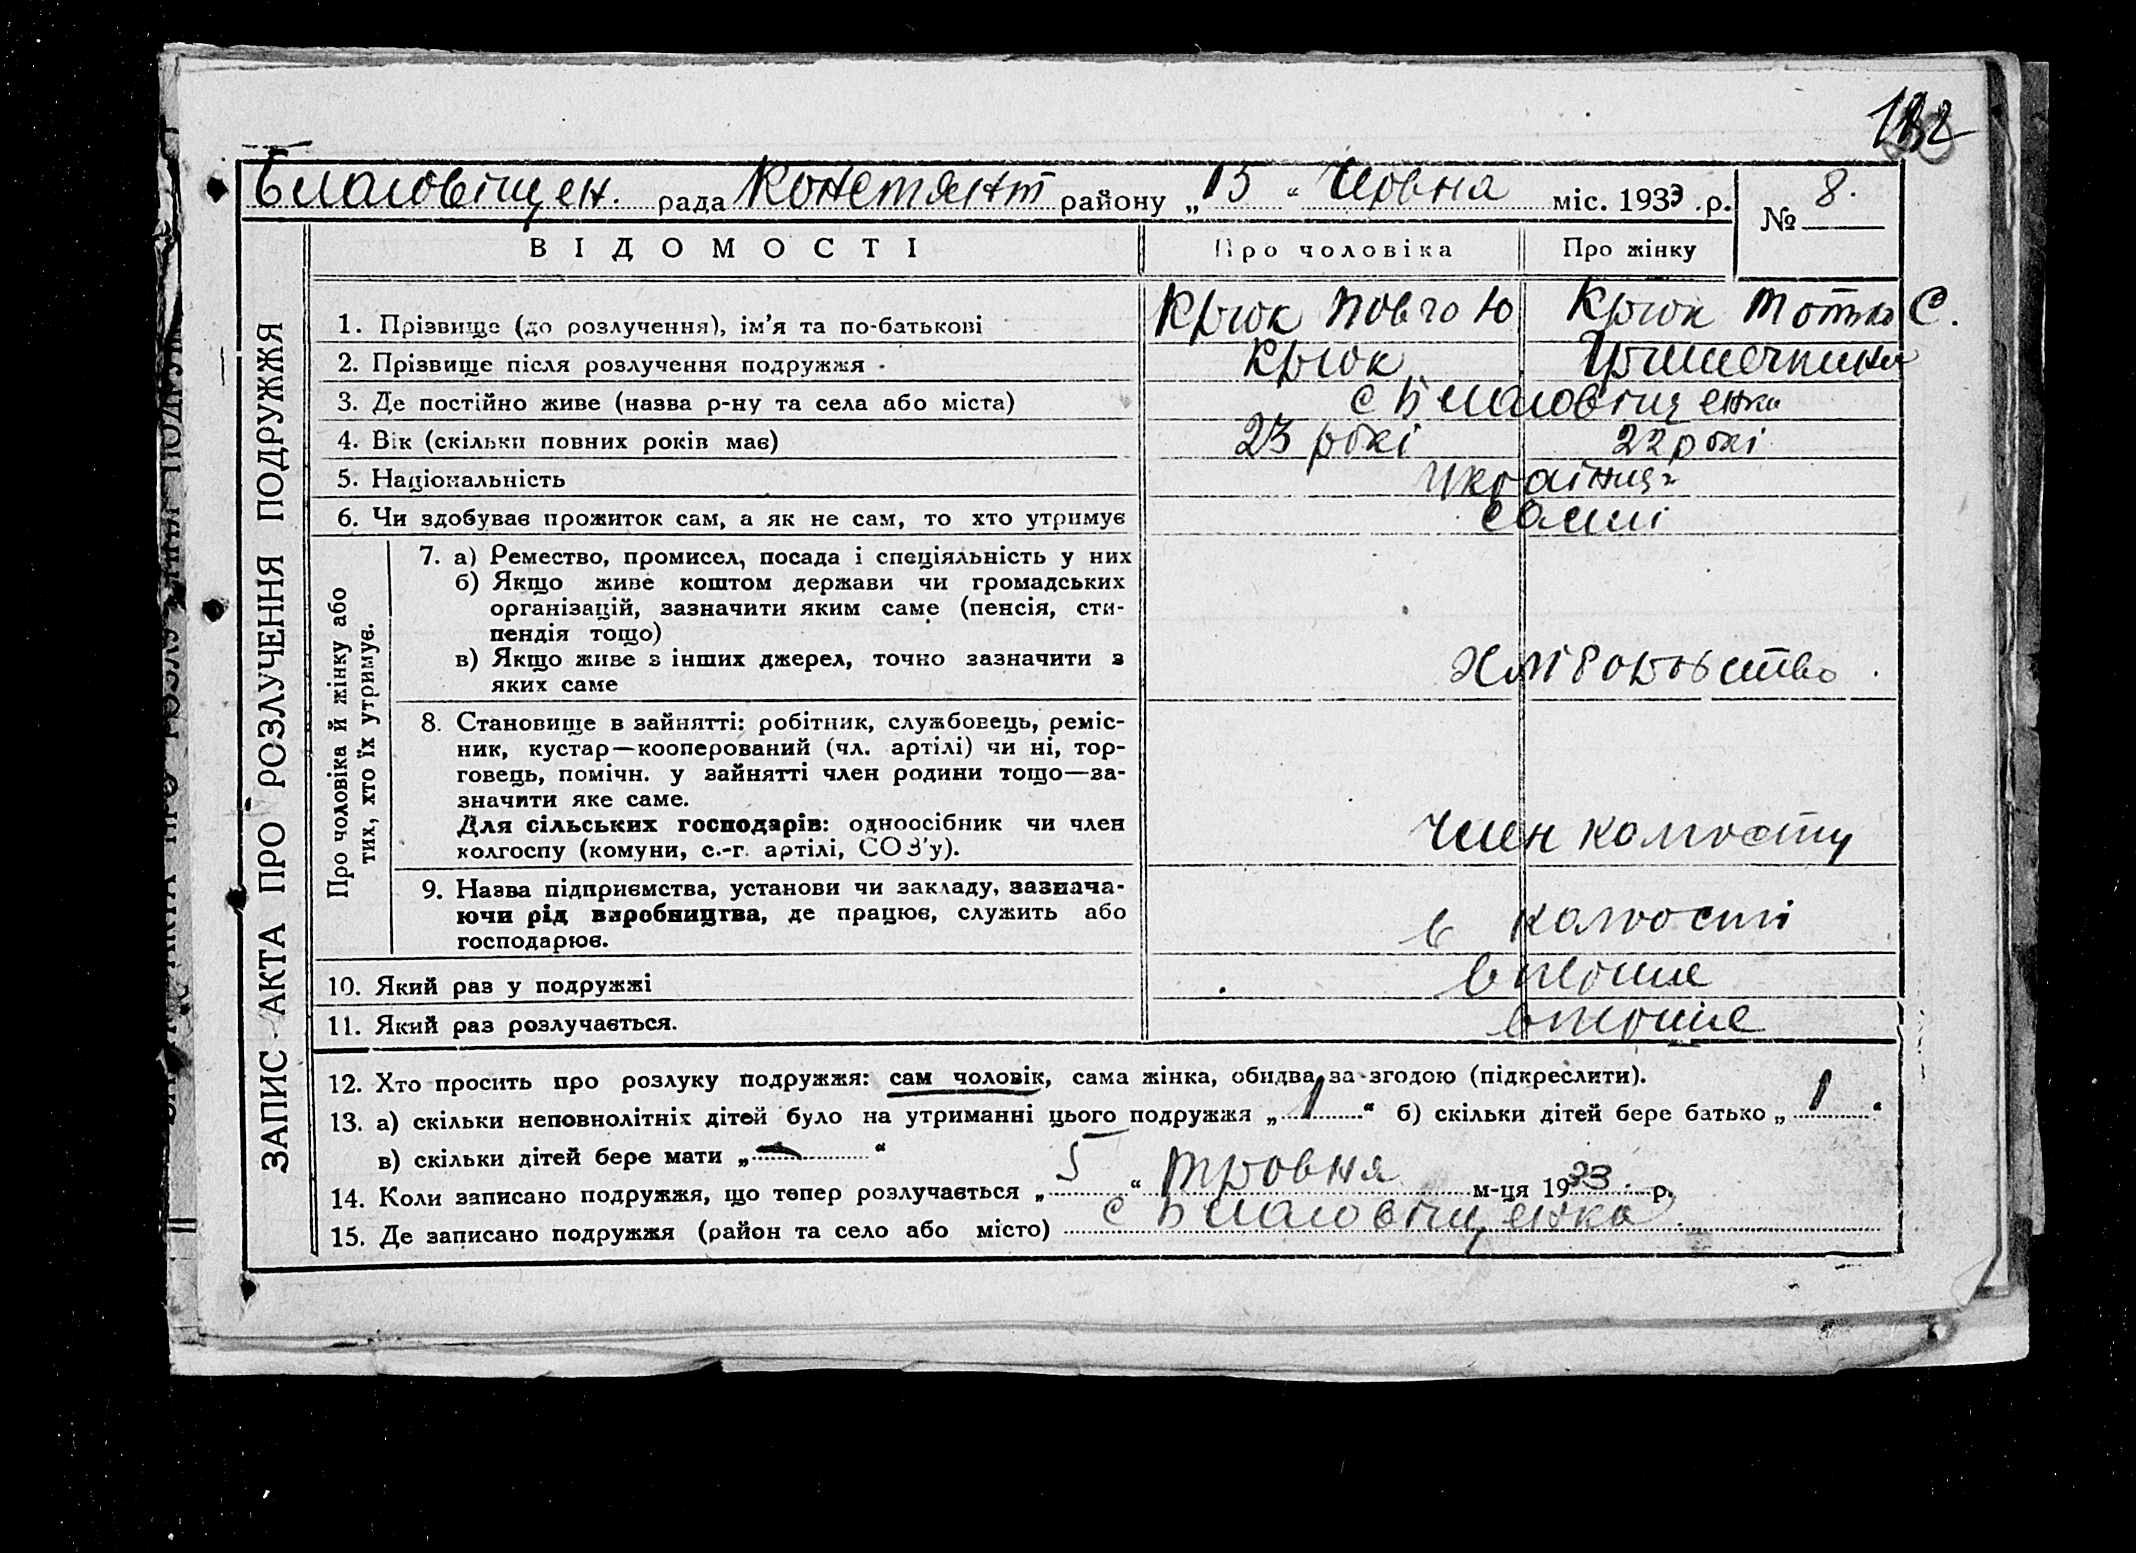 Благовіщен. рада Констянт району „13“ Червня міс. 1933 .р. № 8.
ЗАПИС-АКТА ПРО РОЗЛУЧЕННЯ ПОДРУЖЖЯ
ВІДОМОСТІ Про чоловіка Про жінку
1. Прізвище (до розлучення), ім’я та по-батькові Крюк Крюк С.
2. Прізвище після розлучення подружжя Крюк
3. Де постійно живе (назва р-ну та села або міста) с Благовіщенка
4. Вік (скільки повних років має) 23 рокі 22 рокі
5. Національність Українці
6. Чи здобуває прожиток сам, а як не сам, то хто утримує самі
Про чоловіка й жінку або
тих, хто їх утримує.
7. а) Ремество, промисел, посада і спеціяльність у них
б) Якщо живе коштом держави чи громадських
організацій, зазначити яким саме (пенсія, сти-
пендія тощо)
в) Якщо живе з інших джерел, точно зазначити з
яких саме
хліборобство
8. Становище в зайнятті: робітник, службовець, реміс-
ник, кустар—кооперований (чл. артілі) чи ні, тор-
говець, помічн. у зайнятті член родини тощо—за-
значити яке саме.
Для сільських господарів: одноосібник чи член
колгоспу (комуни, с.-г. артілі, СОЗ’у).
член колгоспу
9. Назва підприємства, установи чи закладу, зазнача-
ючи рід виробництва, де працює, служить або
господарює.
в колгоспі
10. Який раз у подружжі вперше
11. Який раз розлучається. вперше
12. Хто просить про розлуку подружжя: сам чоловік, сама жінка, обидва за згодою (підкреслити).
13. а) скільки неповнолітніх дітей було на утриманні цього подружжя „1“ б) скільки дітей бере батько „1“
в) скільки дітей бере мати „—“
14. Коли записано подружжя, що тепер розлучається „5“ травня м-ця 1933 р.
15. Де записано подружжя (район та село або місто) с Благовіщенка